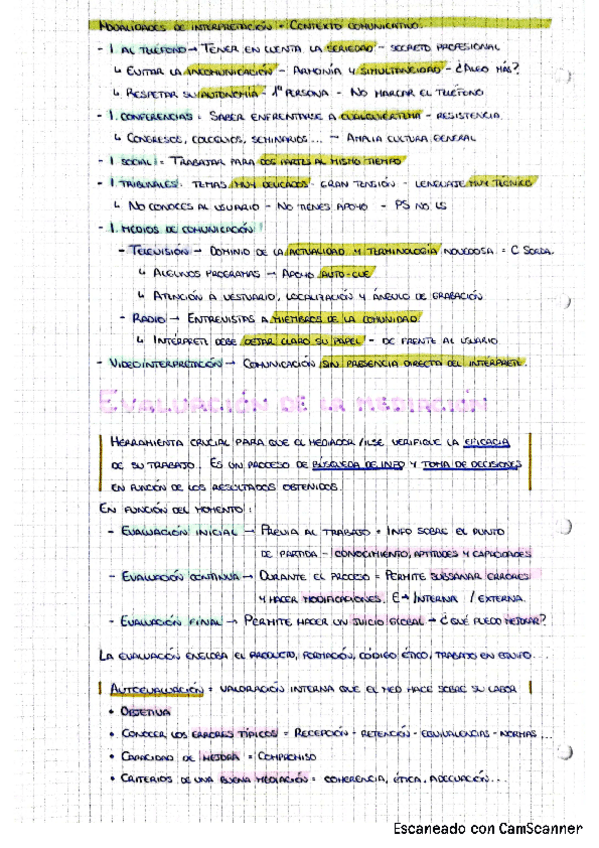 MODALIDADES DE INTERPRETACIÓN = CONTEXTO COMUNICATIVO.
- I. AL TELÉFONO → TENER EN CUENTA LA SERIEDAD - SECRETO PROFESIONAL
↳ EVITAR LA INCOMUNICACIÓN - ARMONÍA Y SIMULTANEIDAD - ¿ALGO MÁS?
↳ RESPETAR SU AUTONOMÍA - 1ª PERSONA - NO MARCAR EL TELÉFONO
- I. CONFERENCIAS: SABER ENFRENTARSE A CUALQUIER TEMA - RESISTENCIA.
↳ CONGRESOS, COLOQUIOS, SEMINARIOS... → AMPLIA CULTURA GENERAL
- I. SOCIAL: TRABAJAR PARA DOS PARTES AL MISMO TIEMPO
- I. TRIBUNALES: TEMAS MUY DELICADOS - GRAN TENSIÓN - LENGUAJE MUY TÉCNICO
↳ NO CONOCES AL USUARIO - NO TIENES APOYO - PS NO LS
- I. MEDIOS DE COMUNICACIÓN:
- TELEVISIÓN → DOMINIO DE LA ACTUALIDAD Y TERMINOLOGÍA NOVEDOSA = C SORDA.
↳ ALGUNOS PROGRAMAS → APOYO AUTO-CUE
↳ ATENCIÓN A VESTUARIO, LOCALIZACIÓN Y ÁNGULO DE GRABACIÓN
- RADIO → ENTREVISTAS A MIEMBROS DE LA COMUNIDAD
↳ INTÉRPRETE DEBE DEJAR CLARO SU PAPEL - DE FRENTE AL USUARIO
- VIDEOINTERPRETACIÓN → COMUNICACIÓN SIN PRESENCIA DIRECTA DEL INTÉRPRETE.
EVALUACIÓN DE LA MEDIACIÓN
HERRAMIENTA CRUCIAL PARA QUE EL MEDIADOR /ILSE VERIFIQUE LA EFICACIA
DE SU TRABAJO. ES UN PROCESO DE BÚSQUEDA DE INFO Y TOMA DE DECISIONES
EN FUNCIÓN DE LOS RESULTADOS OBTENIDOS.
EN FUNCIÓN DEL MOMENTO:
- EVALUACIÓN INICIAL → PREVIA AL TRABAJO = INFO SOBRE EL PUNTO
DE PARTIDA - CONOCIMIENTO, APTITUDES Y CAPACIDADES
- EVALUACIÓN CONTINUA → DURANTE EL PROCESO = PERMITE SUBSANAR ERRORES
Y HACER MODIFICACIONES. E → INTERNA / EXTERNA.
- EVALUACIÓN FINAL → PERMITE HACER UN JUICIO GLOBAL → ¿QUÉ PUEDO MEJORAR?
LA EVALUACIÓN ENGLOBA EL PRODUCTO, FORMACIÓN, CÓDIGO ÉTICO, TRABAJO EN EQUIPO...
AUTOEVALUACIÓN = VALORACIÓN INTERNA QUE EL MED HACE SOBRE SU LABOR
• OBJETIVA
• CONOCER LOS ERRORES TÍPICOS = RECEPCIÓN - RETENCIÓN - EQUIVALENCIAS - NORMAS...
• CAPACIDAD DE MEJORA = COMPROMISO
• CRITERIOS DE UNA BUENA MEDIACIÓN = COHERENCIA, ÉTICA, ADECUACIÓN...
Escaneado con CamScanner